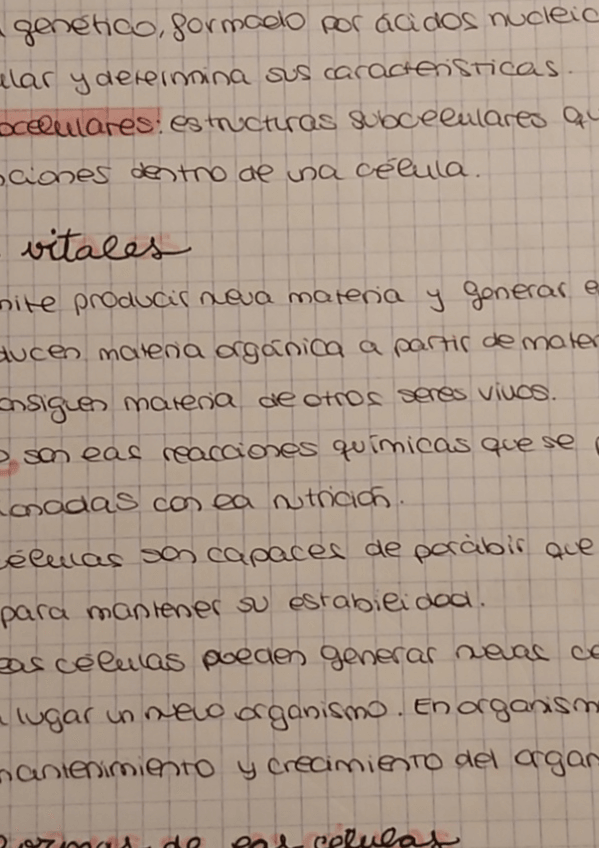 genético, formado por ácidos nucleic
ular y determina sus características.
ocelulares: estructuras subcelulares qu
ciones dentro de una célula.
vitales
mite producir nueva materia y generar e
ducen materia orgánica a partir de mater
onsiguen materia de otros seres vivos.
son las reacciones químicas que se
ionadas con la nutrición.
células son capaces de percibir que
para mantener su estabilidad.
las células pueden generar nuevas cé
lugar un nuevo organismo. En organism
mantenimiento y crecimiento del organ
ormas de las células